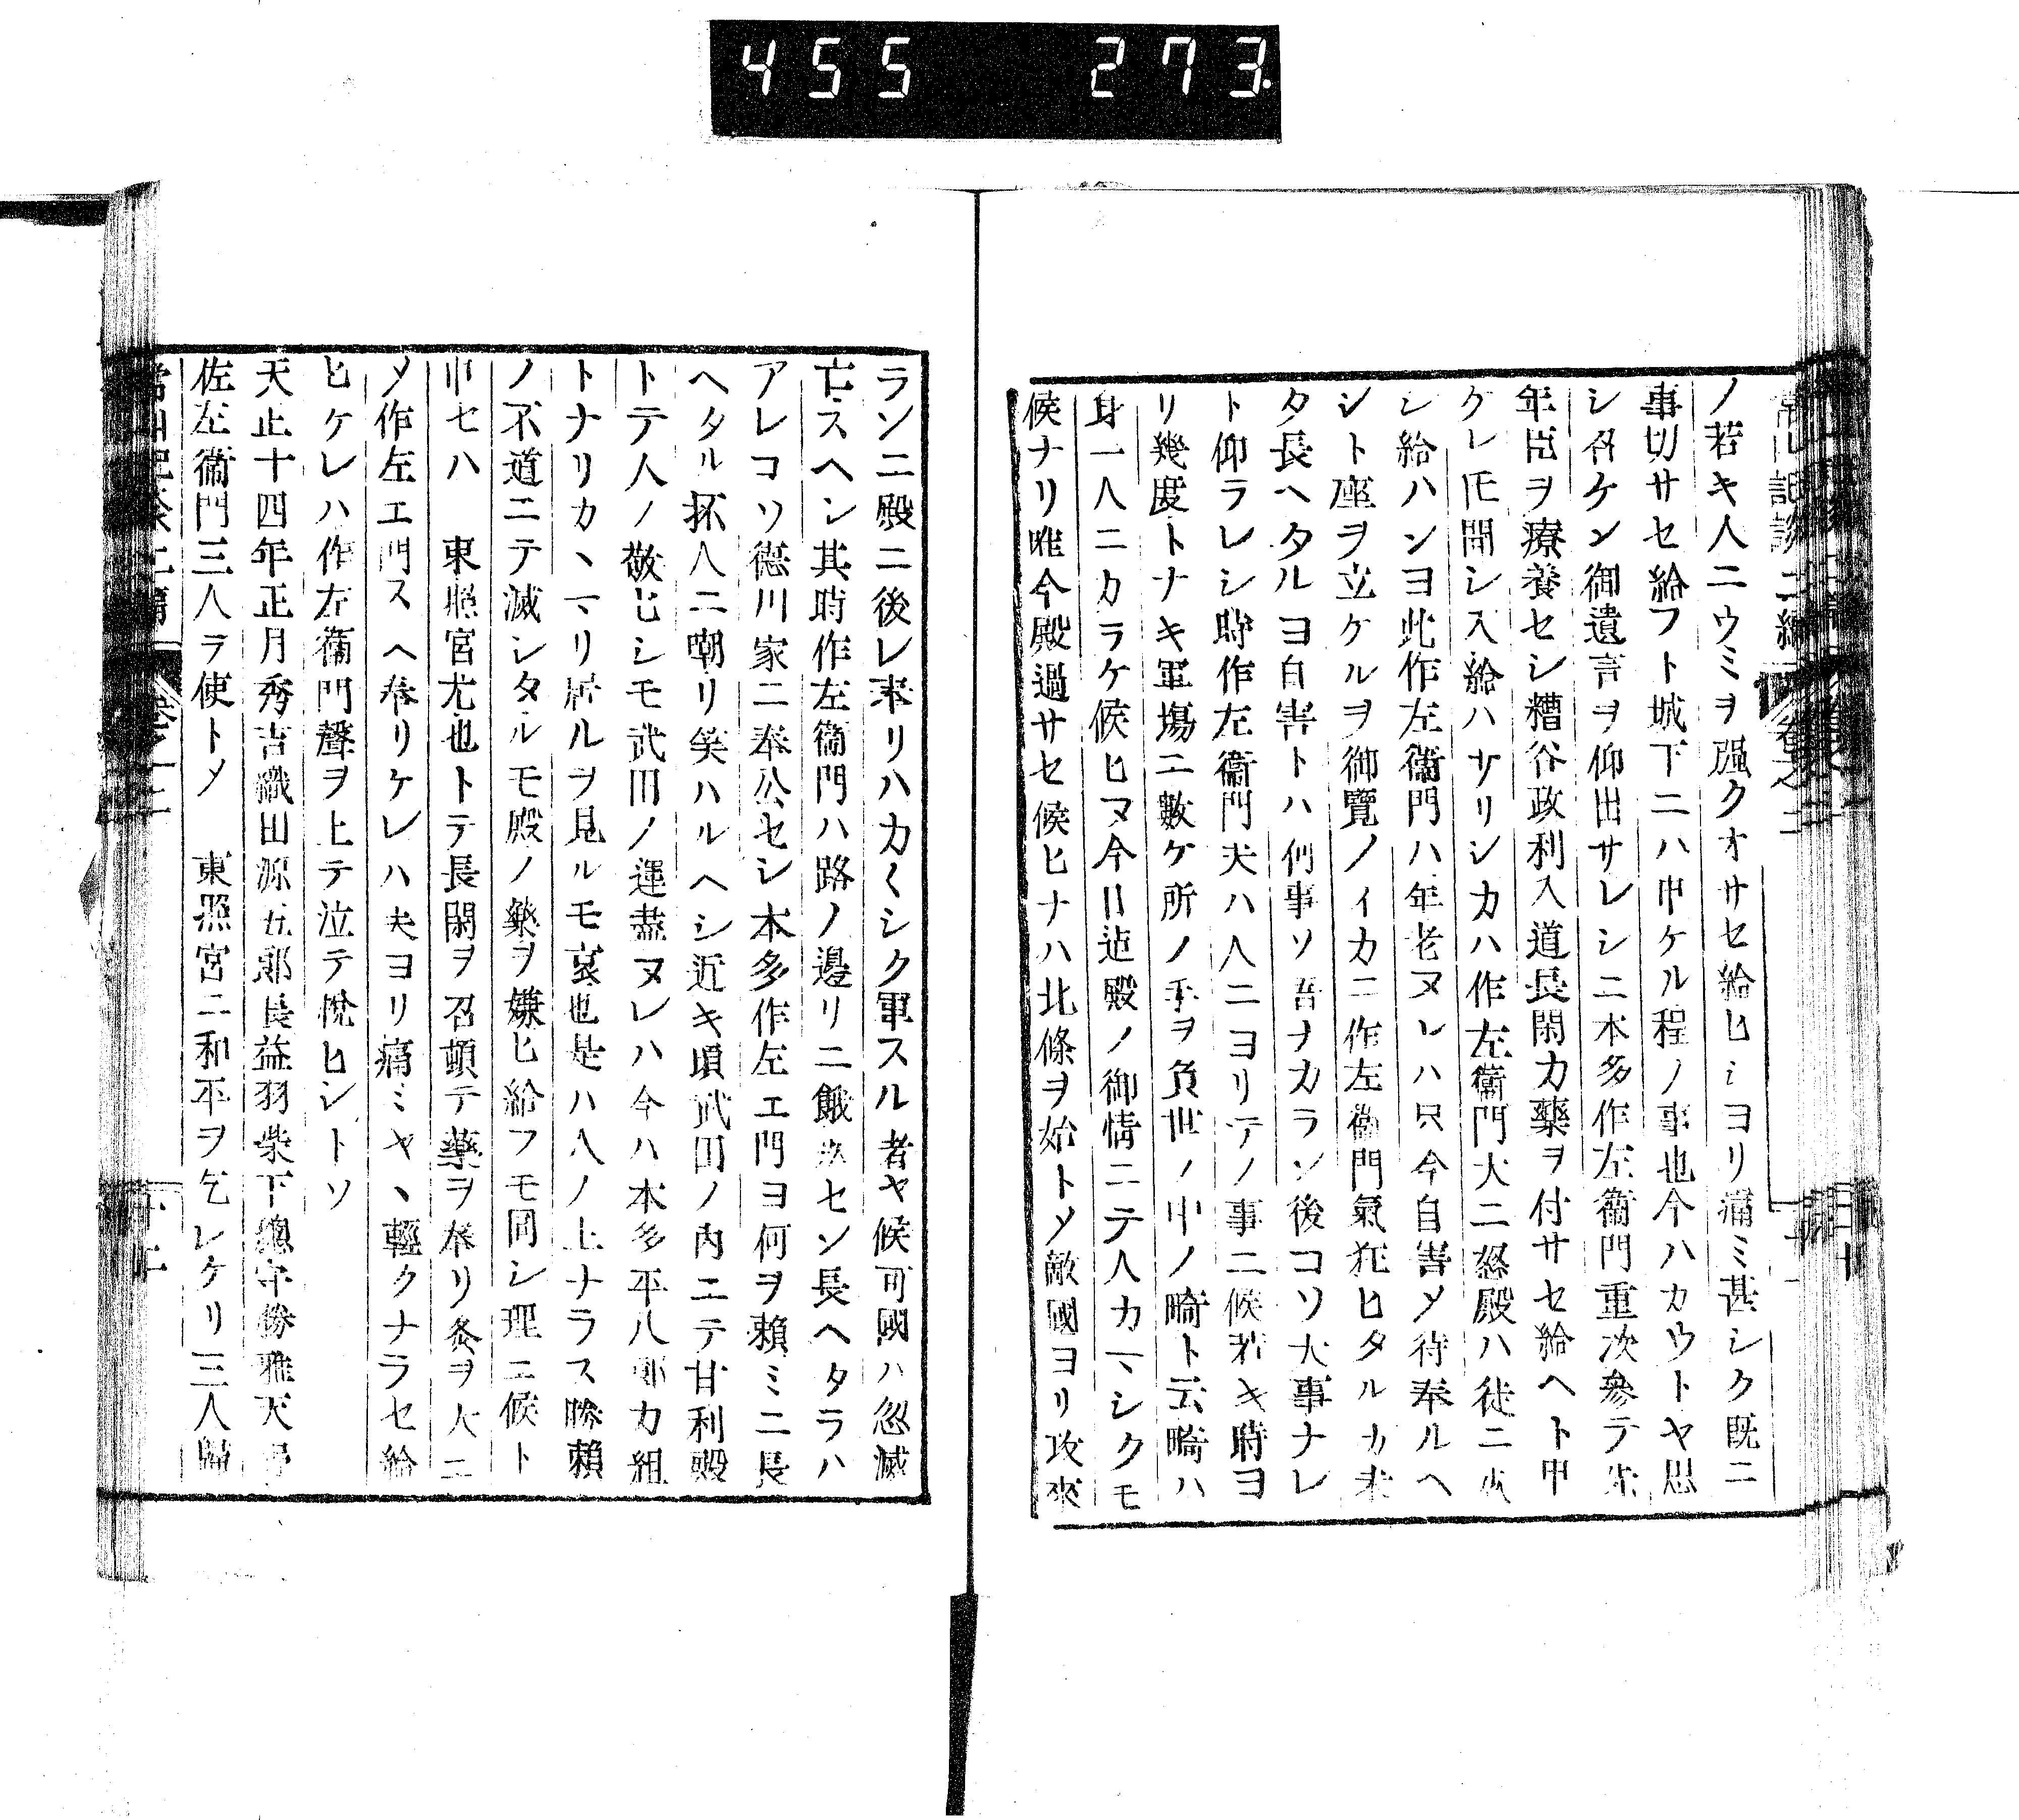 455 273.
ノ若キ人ニウミヲ强クオサセ給ヒシヨリ痛ミ甚シク既ニ
事切サセ給フト城下ニハ申ケル程ノ事也今ハカウトヤ思
シ召ケン御遺言ヲ仰出サレシニ本多作左衞門重次參テ先
年臣ヲ療養セシ糟谷政利入道長閑カ藥ヲ付サセ給ヘト申
ケレ𪜈聞シ入給ハサリシカハ作左衞門大ニ怒殿ハ徒ニ
シ給ハンヨ此作左衞門ハ年老ヌレハ只今自害メ待奉ルヘ
シト座ヲ立ケルヲ御覽ノイカニ作左衞門氣狂ヒタルカ未
タ長ヘタルヨ自害トハ何事ソ吾ナカラン後コソ大事ナレ
ト仰ラレシ時作左衞門夫ハ人ニヨリテノ事ニ候若キ時ヨ
リ幾度トナキ軍場ニ數ケ所ノ手ヲ負世ノ中ノ畸ト云畸ハ
身一人ニカラケ候ヒヌ今日迠殿ノ御情ニテ人カマヽシクモ
候ナリ唯今殿過サセ候ヒナハ北條ヲ始トメ敵國ヨリ攻來
ランニ殿ニ後レ奉リハカ〱シク軍スル者ヤ候可國ハ忽滅
亡スヘン其時作左衞門ハ路ノ邊リニ餓セン長ヘタラハ
アレコソ德川家ニ奉公セシ本多作左エ門ヨ何ヲ賴ミニ長
ヘタル抔人ニ嘲リ笑ハルヘシ近キ頃武田ノ內ニテ甘利殿
トテ人ノ敬ヒシモ武田ノ運盡ヌレハ今ハ本多平八郞カ組
トナリカヽマリ居ルヲ見ルモ哀也是ハ人ノ上ナラス勝賴
ノ不道ニテ滅シタルモ殿ノ藥ヲ嫌ヒ給フモ同シ理ニ候ト
申セハ　東照宮尤也トテ長閑ヲ召頓テ藥ヲ奉リ灸ヲ大ニ
メ作左エ門スヘ奉リケレハ夫ヨリ痛ミヤヽ輕クナラセ給
ヒケレハ作左衞門聲ヲ上テ泣テ悅ヒシトソ
天正十四年正月秀吉織田源五郞長益羽柴下總守勝雅天野
佐左衞門三人ヲ使トメ　東照宮ニ和平ヲ乞レケリ三人歸